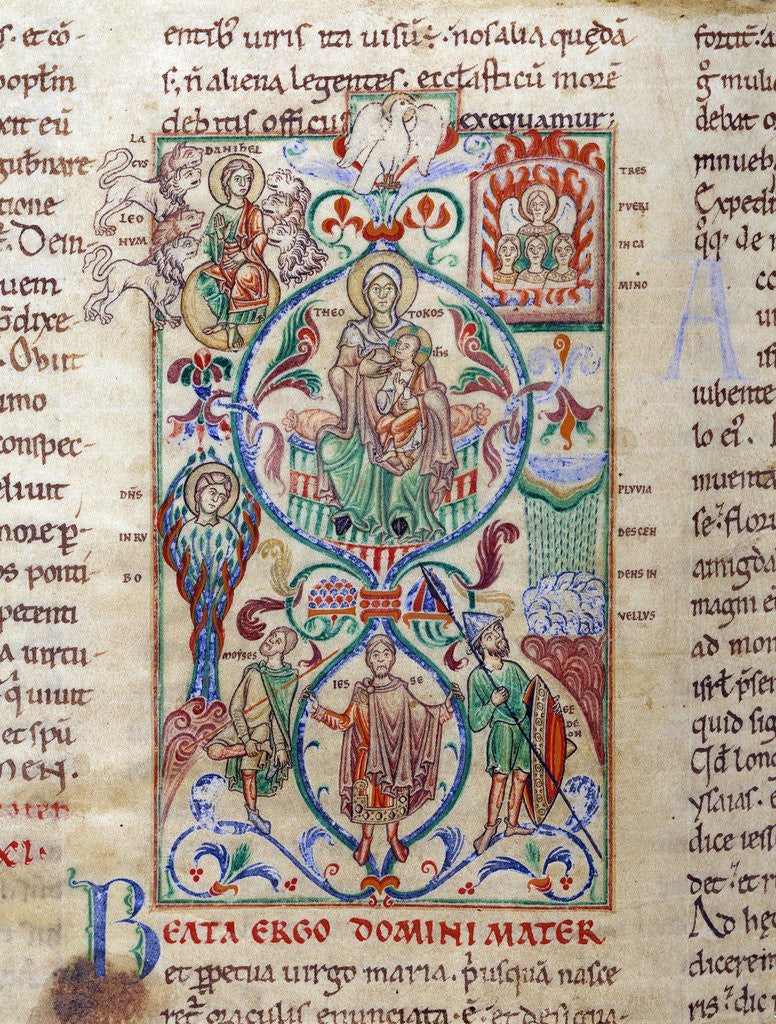 s. et cō-
poplm̄
xit eū
gubnare
tione
Dem-
uem
dixe-
Obut
imo
conspec-
eliut
more p-
os ponti
petenti
a uirtu-
q uiuit
et spū
MEN.
XI.
entib; uiris ita uisū; nos alia quędā
s;, n̄ aliena legentes. eccl̄asticū morē
debitis officiis exequamur;
LA
CVS
LEO
NVM
DANIHEL
TRES
PVERI
IN CA
MINO
THEO TOKOS
IH̄S
DN̄S
IN RV
BO
PLVVIA
DESCEN
DENS IN
VELLVS
MOYSES
IES SE
GE
DE
ON
BEATA ERGO DOMINI MATER
et p̱petua uirgo maria. p̓usquā nasce
ret᷑ oraculis enunciata. ē. et designa-
fortit᷑. a
debat o
innueb
Expedi
q̄q; de
A
iubente
lo ei᷒.
inuenta
se᷑. flor
amigda
magni e
ad mon
isr̄l p̄sen
quid sig
Qd̄ lon
ysaias.
dice iess
det᷑. et r
Ad hęc
dicerem
ris᷑. dic